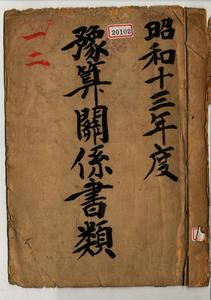 昭和十三年度
豫算關係書類
一二
20102